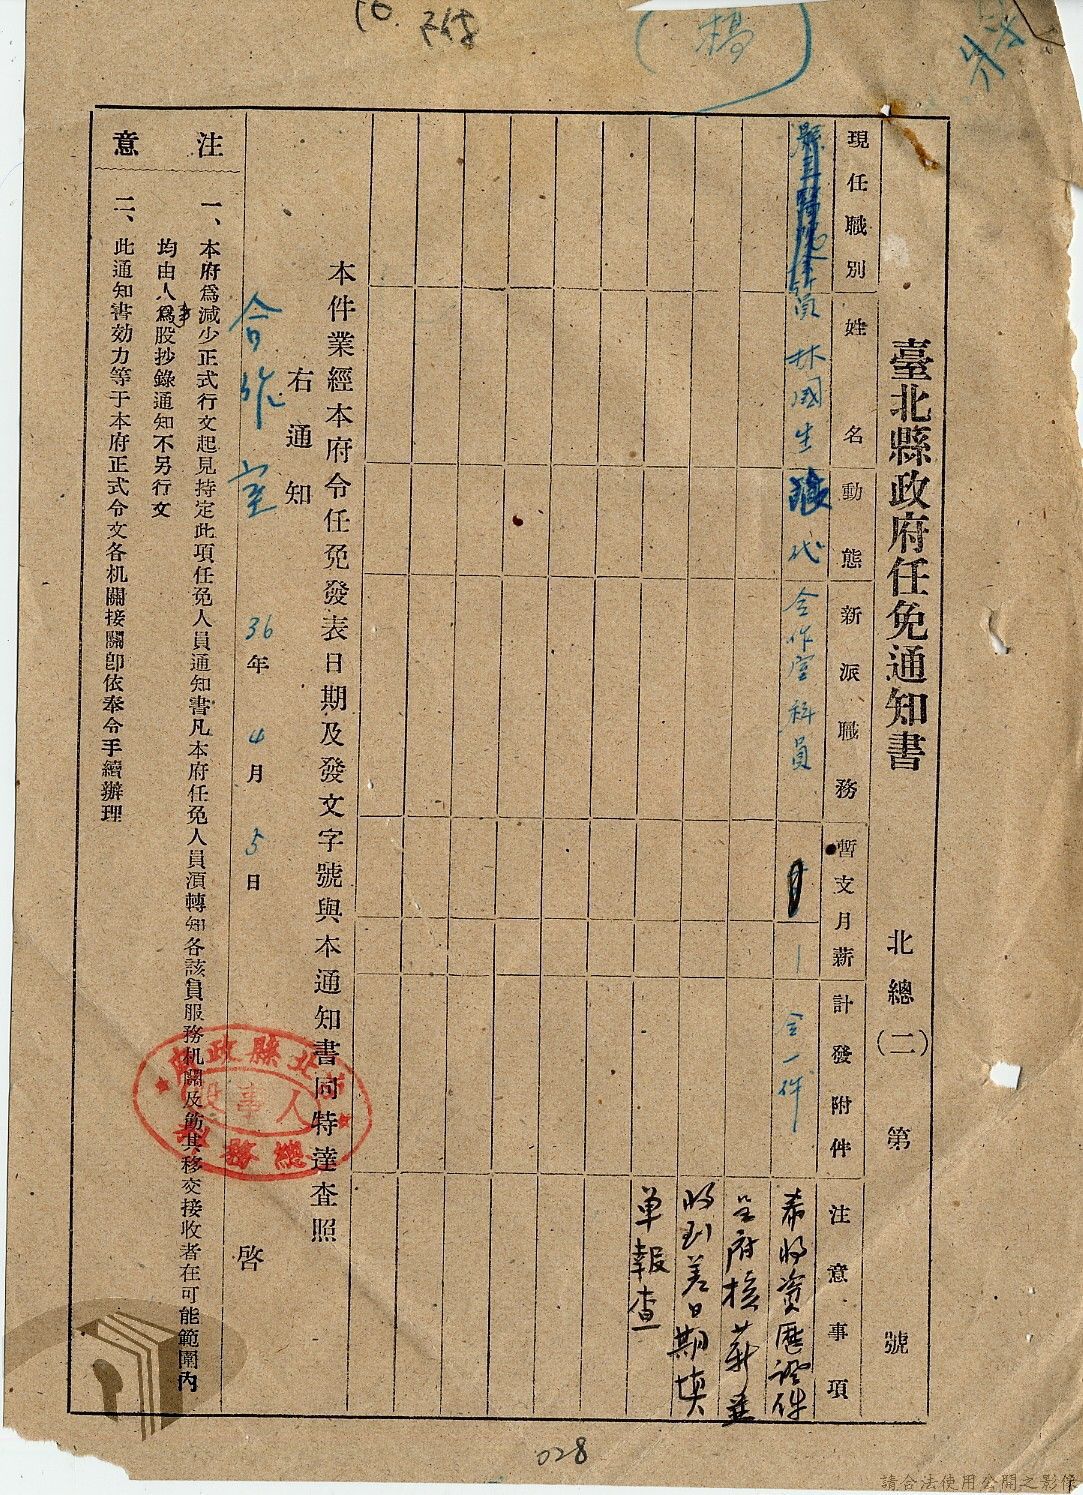 （稿）
臺北縣政府任免通知書
北總(二)第　號
現任職別
姓名
動態
新派職務
暫支月薪
計發附件
注意事項
林國生
代
合作室科員
令一件
希將資歷證件
呈府核薪並
將到差日期填
單報查
本件業經本府令任免發表日期及發文字號與本通知書同特達查照
右通知
合作室
36年4月5日
啓
注意
一、本府爲減少正式行文起見持定此項任免人員通知書凡本府任免人員湏轉知各該員服務机關及飭其移交接收者在可能範圍內
均由人事爲股抄錄通知不另行文
二、此通知書効力等于本府正式令文各机關接關卽依奉令手續辦理
臺北縣政府
人事股
總務科
028
請合法使用公開之影像